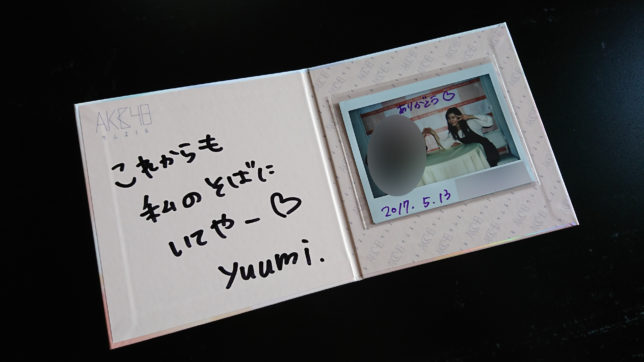 AKB48
これからも
私のそばに
いてやー♡
yuumi.
ありがとう♡
2017. 5. 13